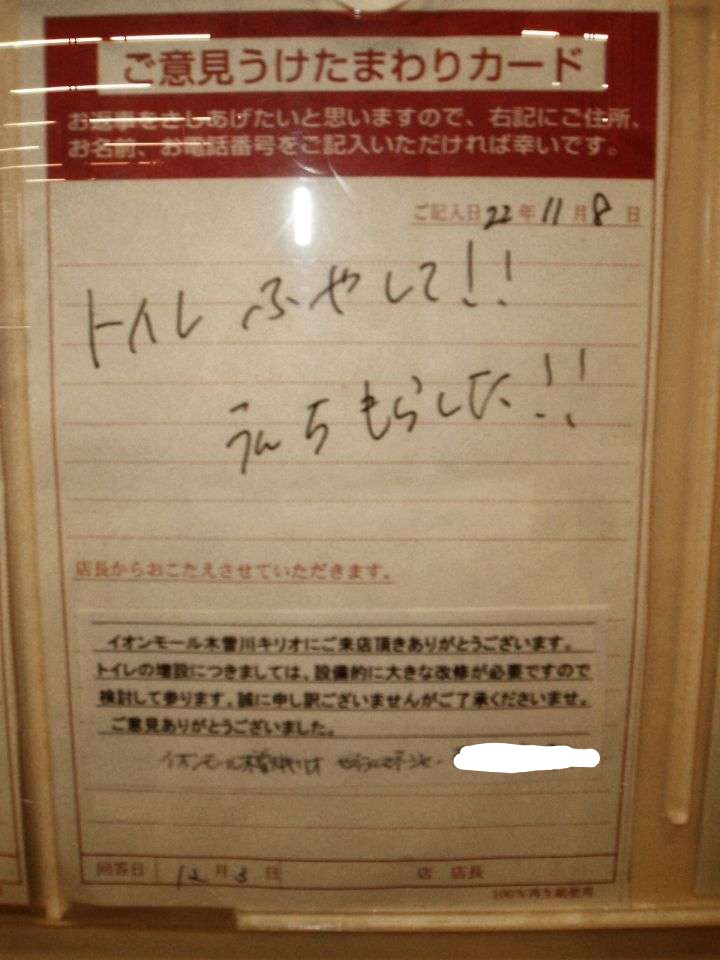 ご意見うけたまわりカード
お返事をさしあげたいと思いますので、右記にご住所、
お名前、お電話番号をご記入いただければ幸いです。
ご記入日22年11月8日
トイレ ふやして!!
うんち もらした!!
店長からおこたえさせていただきます。
イオンモール木曽川キリオにご来店頂きありがとうございます。
トイレの増設につきましては、設備的に大きな改修が必要ですので
検討して参ります。誠に申し訳ございませんがご了承くださいませ。
ご意見ありがとうございました。
イオンモール木曽川キリオ ゼネラルマネージャー
回答日 12月3日 店 店長
100%再生紙使用